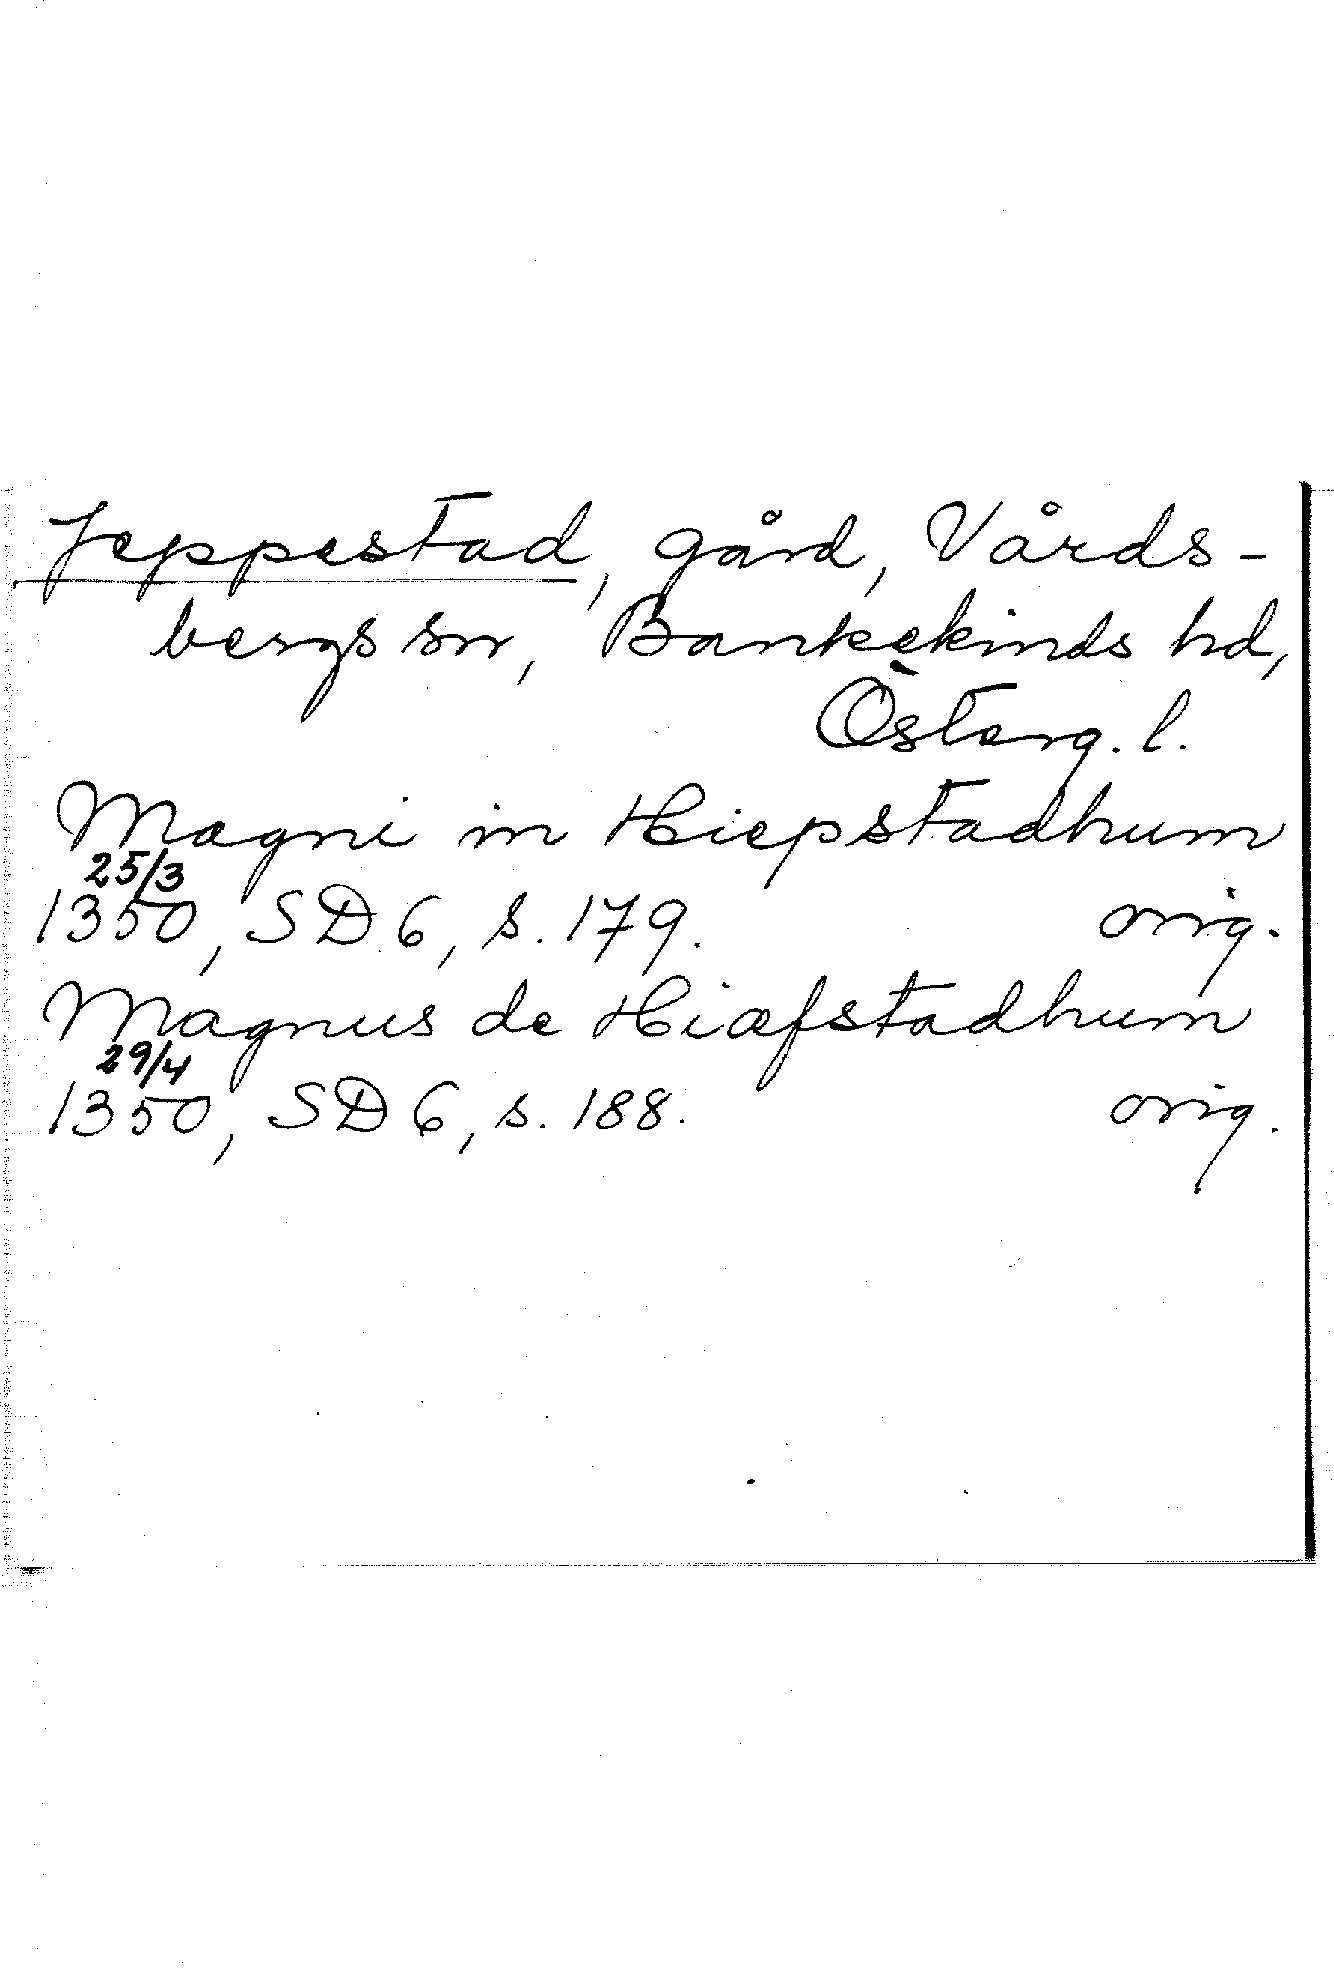 Jeppestad, gård, Vårds-
bergs sn, Bankekinds hd,
Österg. l.
Magni in Hiepstadhum
25/3
1350, SD 6, s. 179. orig.
Magnus de Hiæfstadhum
29/4
1350, SD 6, s. 188. orig.